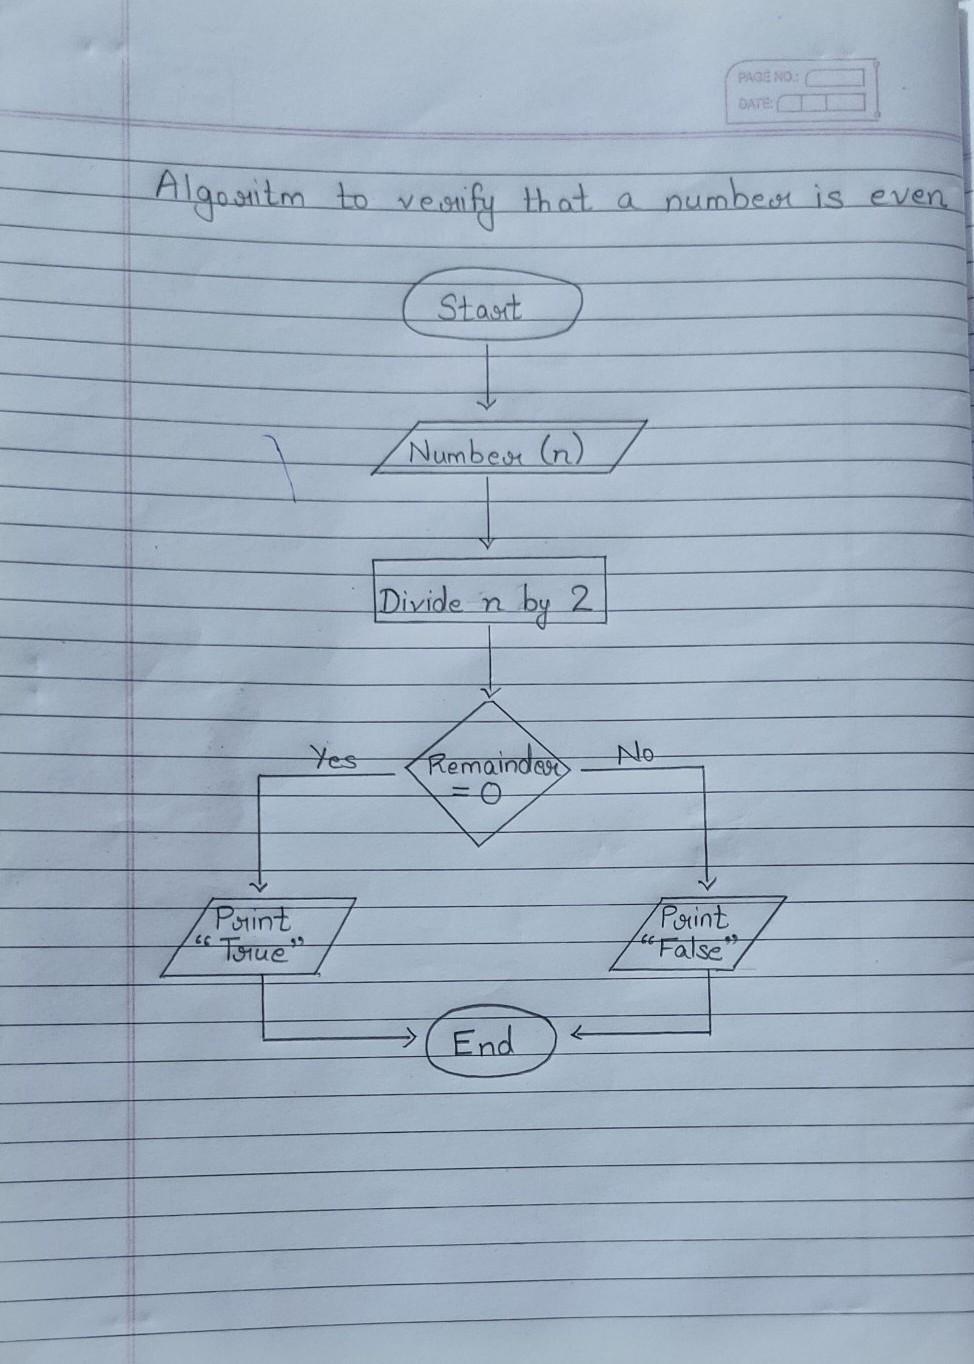 PAGE NO.:
DATE:
Algoritm to verify that a number is even
Start
Number (n)
Divide n by 2
Yes
Remainder
= 0
No
Print
"True"
Print
"False"
End